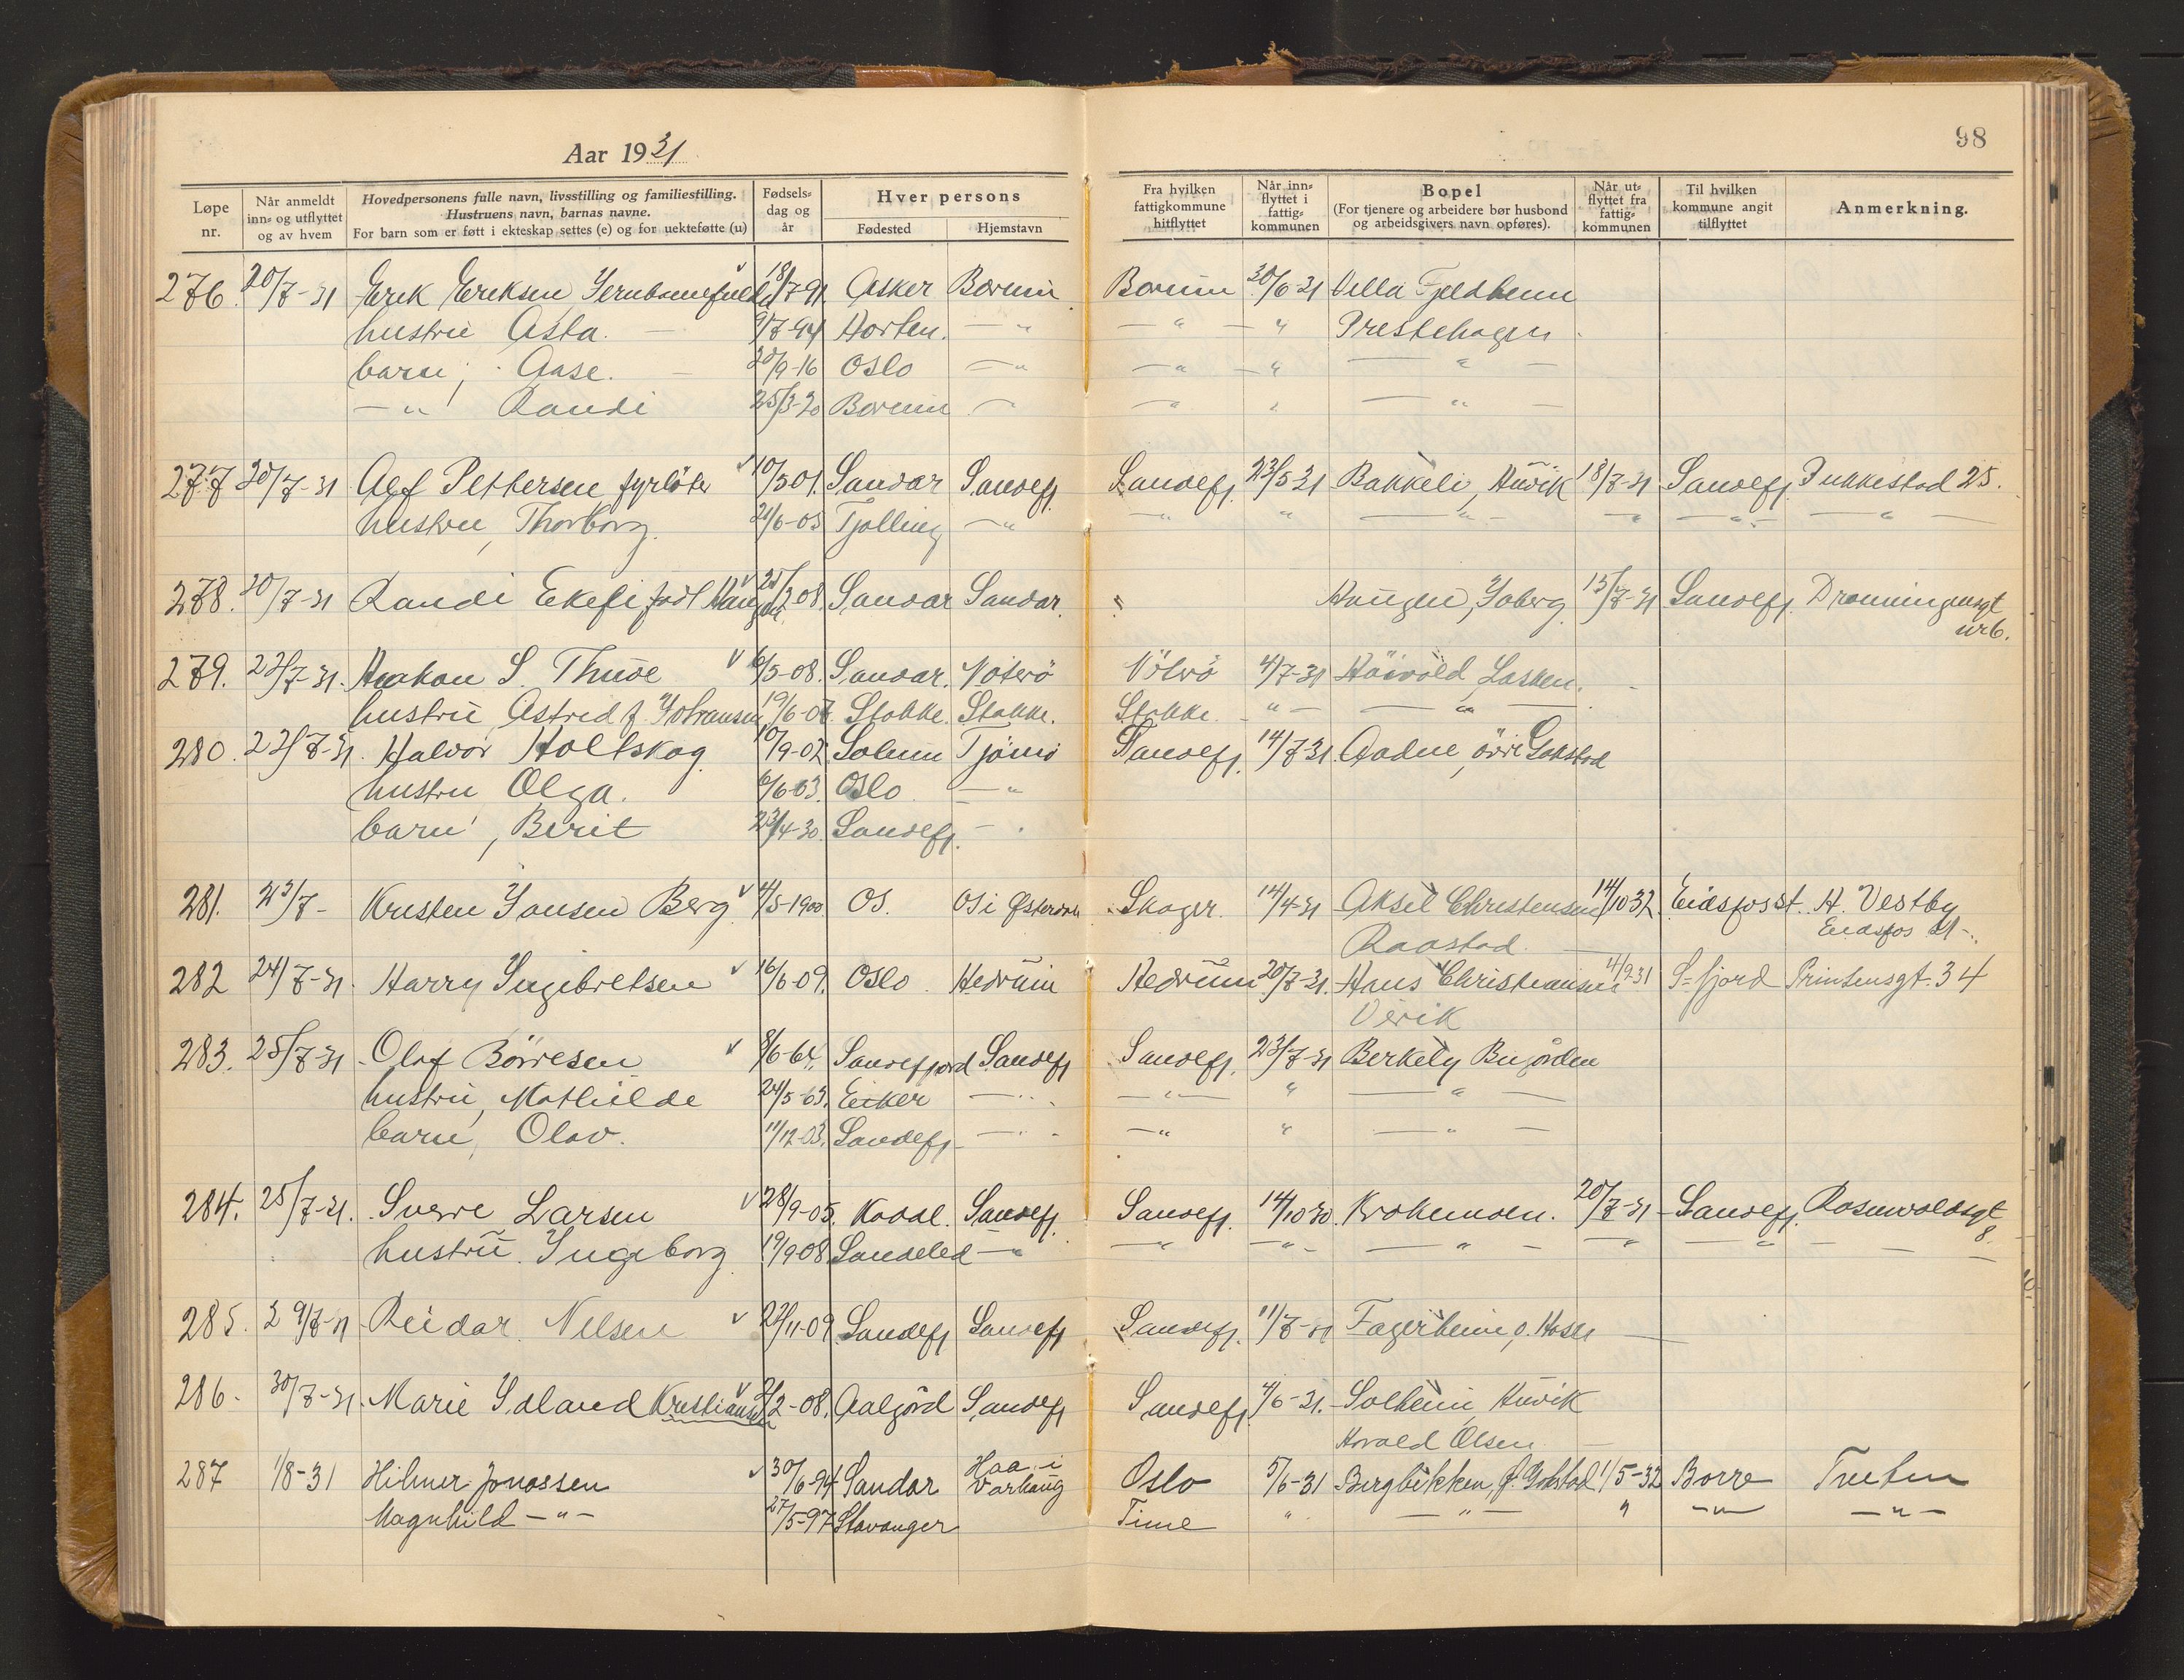 Aar 1931
98
Løpe nr. | Når anmeldt inn= og utflyttet og av hvem | Hovedpersonens fulle navn, livsstilling og familiestilling. Hustruens navn, barnas navne. For barn som er født i ekteskap settes (e) og for uekteføtte (u) | Fødsels= dag og år | Hver persons Fødested | Hjemstavn | Fra hvilken fattigkommune hitflyttet | Når inn= flyttet i fattig= kommunen | Bopel (For tjenere og arbeidere bør husbond og arbeidsgivers navn opføres). | Når ut= flyttet fra fattig= kommunen | Til hvilken kommune angit tilflyttet | Anmerkning.
276. 20/7-31 Erik Eriksen 18/7-91. Asker Bærum Bærum 30/6-31 Villa Fjeldheim
hustru Asta. — 9/7-94 Horten. —"— —"— " Prestehagen
barn; Aase. — 20/9-16 Oslo —"— —"— " —"—
—"— Randi 25/3-20 Bærum —"— —"— " —"—
277 20/7-31 Alf Pettersen fyrböter 10/5 01. Sandar Sandefj. Sandefj. 23/5 31 Bakkeli, Huvik 18/7-31 Sandefj. Pukkestad 25.
hustru, Thorborg. 21/6-05 Tjølling —"— —"— " —"— " —"— —"—
278. 20/7-31 Randi Ekeli född Haugen 25/2 08. Sandar Sandar. " Haugen, Joberg. 15/7-31 Sandefj. Dronningensgt
ur 6.
279. 22/7-31. Haakon S. Thue 6/5-08. Sandar. Nöterö Nöterö 4/7-31 Höivold, Lasken.
hustru Astrid f. Johansen 19/6-07. Stokke. Stokke. Stokke. —"— —"—
280. 22/7-31. Halvor Holtskog 10/9-02 Solum Tjömö Sandefj. 14/7-31. Aadne, övre Gokstad
hustru Olga. 6/6-03. Oslo —"—
barn, Berit 23/4-30 Sandefj. —"—
281. 23/7- Kristen Jansen Berg 4/5-1900 Os. Os i Østerdal Skoger. 14/4-31 Aksel Christensen 14/10 32 Eidsfos st. H. Vestby
Raastad. Eidsfos st.
282 24/7-31. Harry Ingebretsen 16/6-09. Oslo. Hedrum Hedrum 20/7-31. Hans Christiansen 4/9 31 S-fjord Prinsensgt. 34
Virik
283. 25/7-31 Olaf Börresen 8/6-64. Sandefjord Sandefj Sandefj. 23/7-31 Berkely Bugården
hustru, Mathilde 24/5-63. Eiker —"— —"— " —"—
barn, Olav. 11/12-03. Sandefj. —"— —"— " —"—
284. 25/7-31. Sverre Larsen 28/9-05. Kodal. Sandefj. Sandefj. 14/10 30. Krokemoen. 20/7-31 Sandefj. Rosenvoldsgt
8.
hustru Ingeborg 19/9 08. Sandeled —"— —"— —"— —"— " —"—
285. 29/7-31 Reidar Nilsen 22/11-09 Sandefj Sandefj Sandefj. 11/7-31 Fagerheim, ø. Hasle
286. 30/7-31. Marie Idland Kristiansen 2/2-08. Aalgård Sandefj Sandefj. 4/6-31. Solheim, Huvik
Harald Olsen
287 1/8-31 Hilmer Jonassen 30/6-94 Sandar Haa i Varhaug Oslo 5/6-31 Bergbikken, ø. Gokstad 1/5-32 Borre
Magnhild —"— 27/5-97 Stavanger Time " —"— " —"— —"—